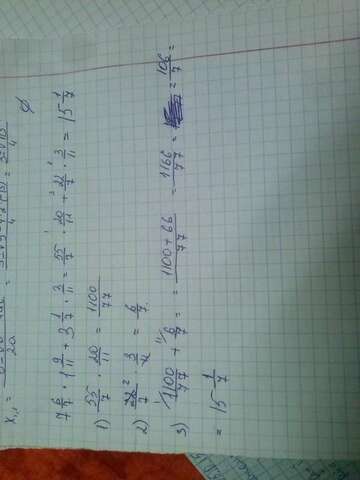 7 6/7 · 1 9/11 + 3 1/7 · 3/11 = 55/7 · 20/11 + 22/7 · 3/11 = 15 1/7
1) 55/7 · 20/11 = 1100/77
2) 22/7 · 3/11 = 6/7
3) 1100/77 + 6/7 = = 1100+66/77 = 1166/77 = = 106/7 =
= 15 1/7